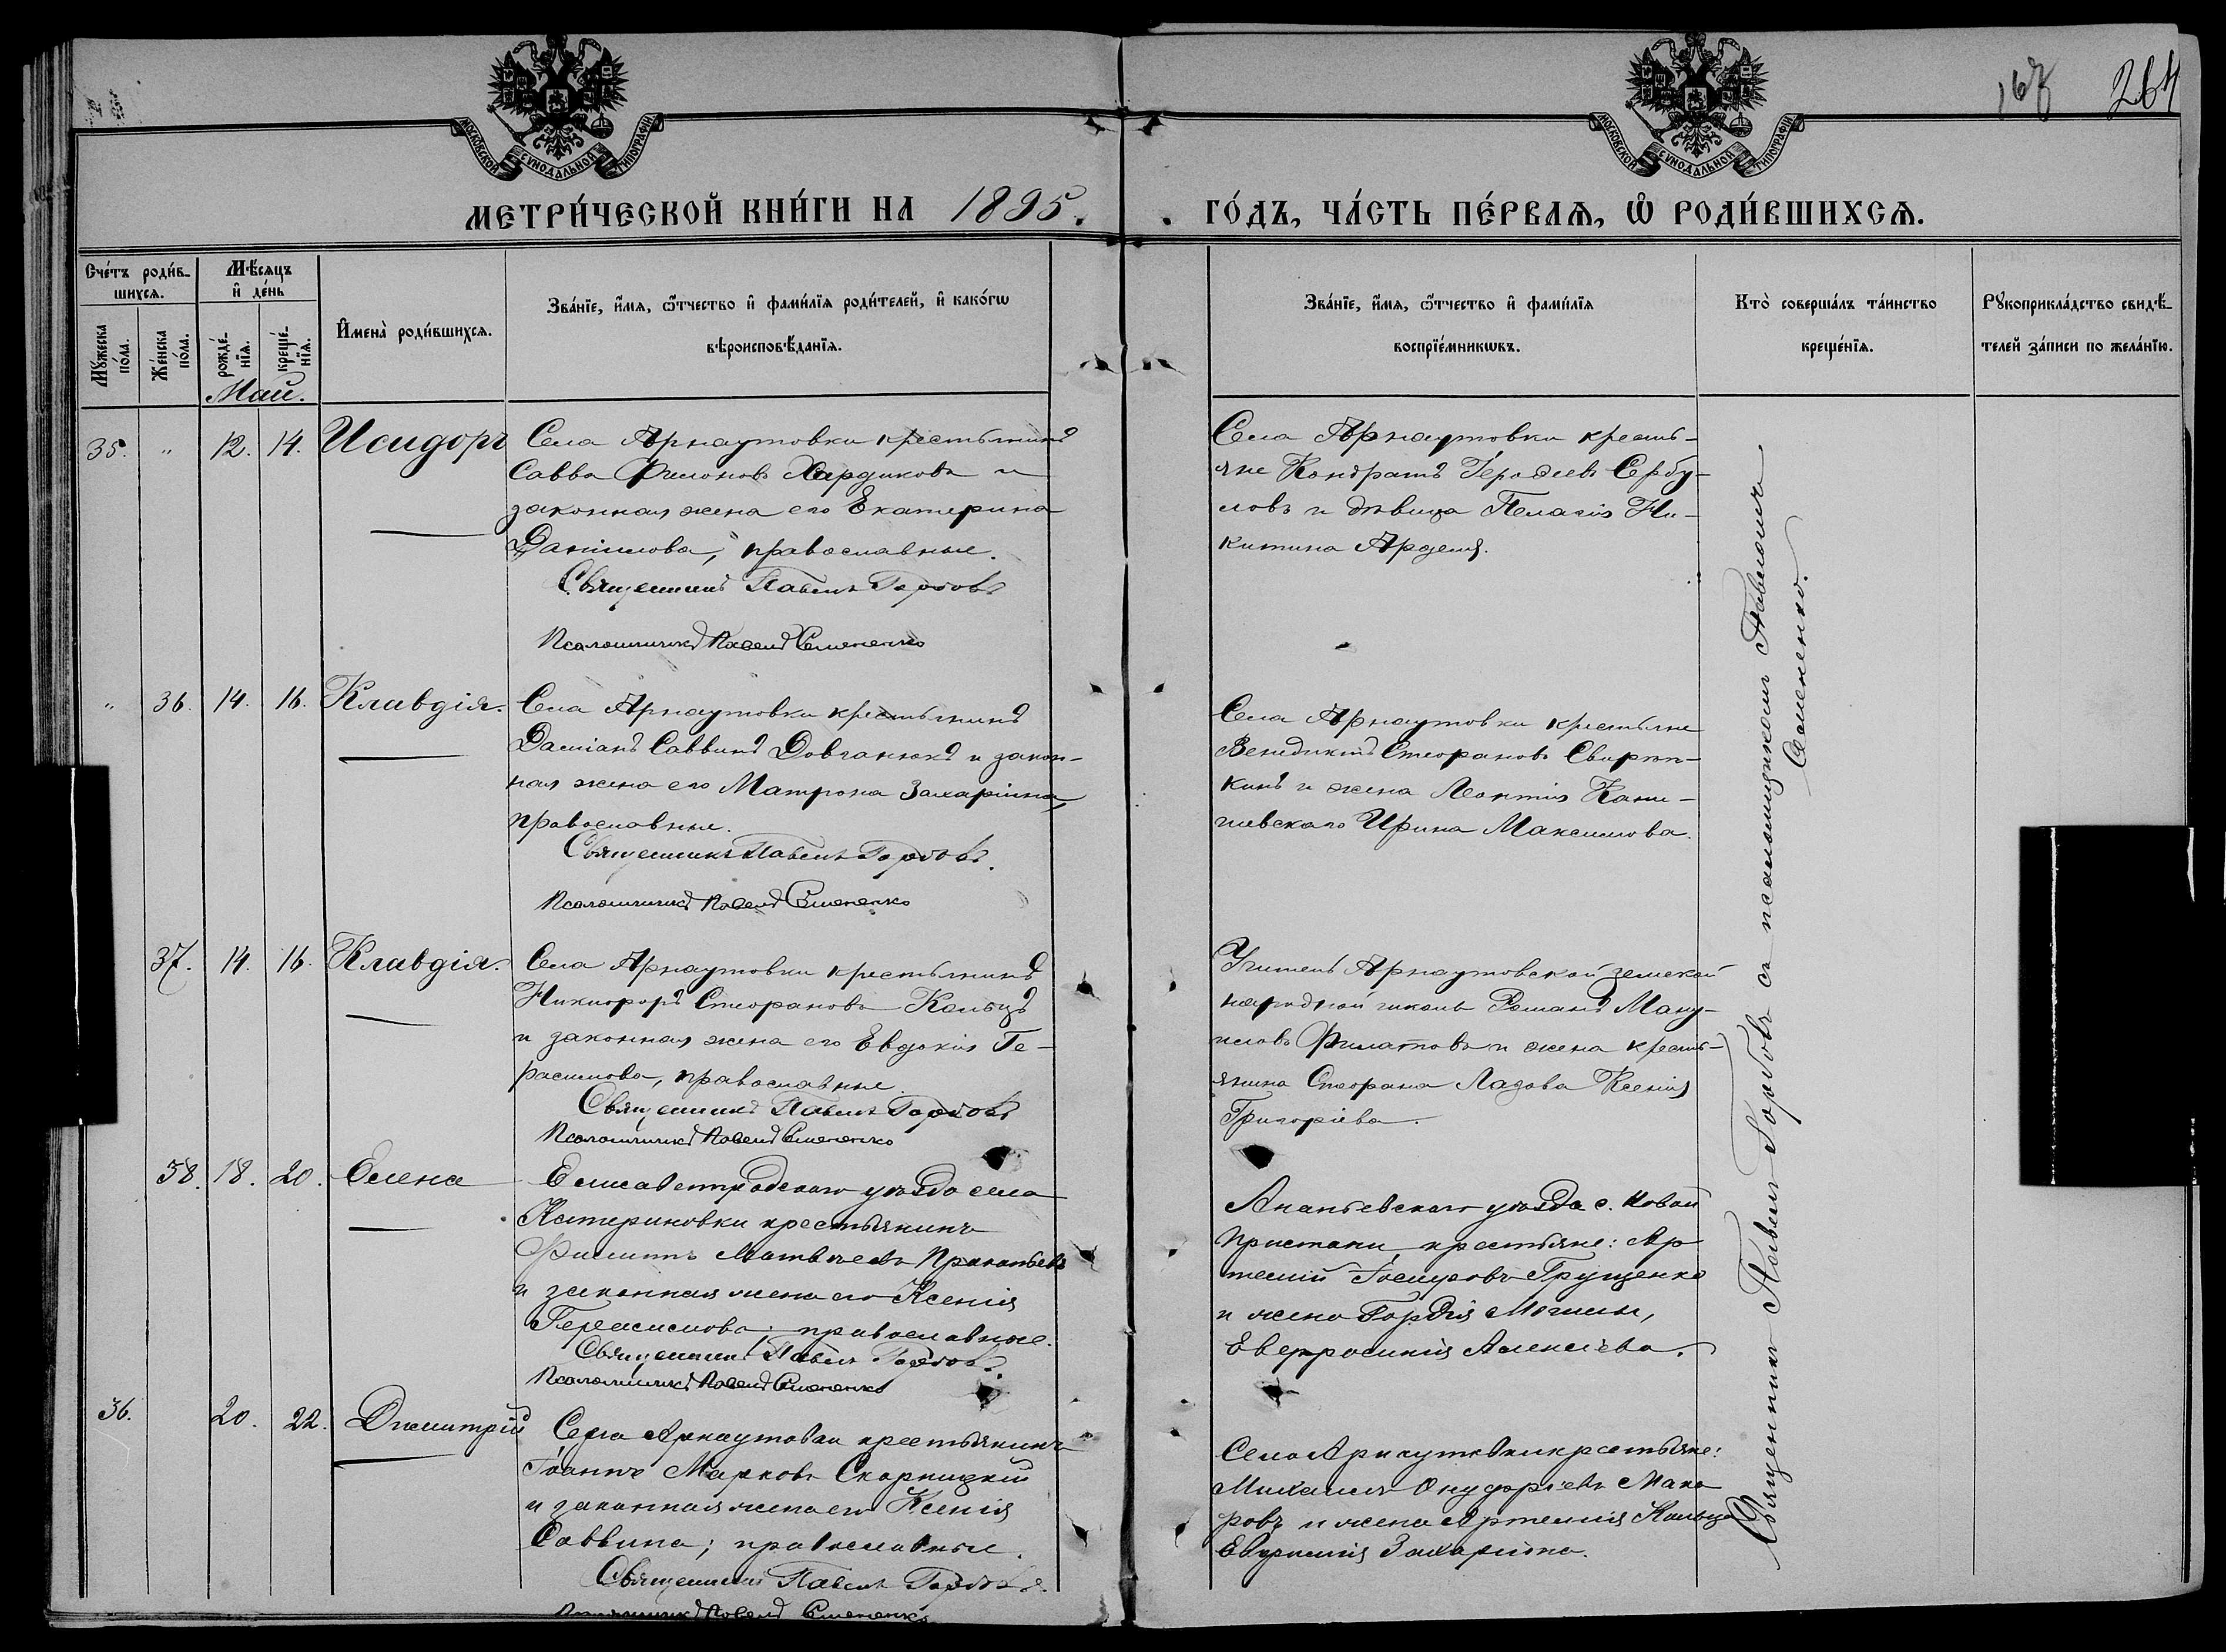 167 264
МОСКОВСКОЙ СѴНОДАЛЬНОЙ ТИПОГРАФІИ
МОСКОВСКОЙ СѴНОДАЛЬНОЙ ТИПОГРАФІИ
МЕТРИ́ЧЕСКОЙ КНИ́ГИ НА 1895.
ГО́ДЪ, ЧА́СТЬ ПЕ́РВАѦ, Ѡ҆ РОДИ́ВШИХСѦ.
Сче́тъ роди́в-
шихсѧ.
Мꙋ́жеска
по́ла.
Же́нска
по́ла.
Мѣ́сѧцъ
и҆ де́нь
рожде́-
нїѧ.
креще́-
нїѧ.
Май.
И҆мена̀ роди́вшихсѧ.
Зва́нїе, и҆́мѧ, ѻ҆́тчество и҆ фами́лїѧ роди́телей, и҆ како́гѡ
вѣроисповѣ́данїѧ.
Зва́нїе, и҆́мѧ, ѻ҆́тчество и҆ фами́лїѧ
воспрїе́мникѡвъ.
Кто̀ соверша́лъ та́инство
креще́нїѧ.
Рꙋкоприкла́дство свидѣ́-
телей за́писи по жела́нїю.
35. " 12. 14. Исидоръ
Села Арнаутовки крестьянинъ
Савва Филоновъ Хардиковъ и
законная жена его Екатерина
Даніилова, православные.
Священникъ Павелъ Горбовъ
Псаломщикъ Павелъ Семененко
Села Арнаутовки кресть-
яне Кондратъ Сербу-
ловъ и дѣвица Пелагія Ни-
китина
" 36. 14. 16. Клавдія.
Села Арнаутовки крестьянинъ
Даміанъ Саввинъ Довганюкъ и закон-
ная жена его Матрона Захаріина,
православные.
Священникъ Павелъ Горбовъ.
Псаломщикъ Павелъ Семененко
Села Арнаутовки крестьяне
Венедиктъ Стефановъ
кинъ и жена Леонтія Кани-
гиевскаго Ирина Максимова.
37. 14. 16. Клавдія.
Села Арнаутовки крестьянинъ
Никифоръ Стефановъ Кольцъ
и законная жена его Евдокія Ге-
расимова, православные.
Священникъ Павелъ Горбовъ
Псаломщикъ Павелъ Семененко
Учитель Арнаутовской земской
народной школы Романъ Ману-
иловъ Филатовъ и жена кресть-
янина Стефана Лазова Ксенія
Григоріева.
38. 18. 20. Елена
Елисаветградскаго уѣзда села
Катериновки крестьянинъ
Филиппъ Матвѣевъ Прокопьевъ
и законная жена его Ксенія
Герасимова; православные.
Священникъ Павелъ Горбовъ.
Псаломщикъ Павелъ Семененко
Ананьевскаго уѣзда с. Новой
Пристани крестьяне: Ар
темій Іосифовъ Грущенко
и жена Гордія Могилы,
Евфросинія Алексіева.
36. 20. 22. Димитрій
Села Арнаутовки крестьянинъ
Іоаннъ Марковъ Скорницкій
и законная жена его Ксенія
Саввина; православные.
Священникъ Павелъ Горбовъ.
Псаломщикъ Павелъ Семененко
Села Арнаутовки крестьяне:
Михаилъ Онуфріевъ Мака
ровъ и жена Артемія Кольца
Евфимія Захаріина.
Священникъ Павелъ Горбовъ съ псаломщикомъ Павломъ
Семененко.